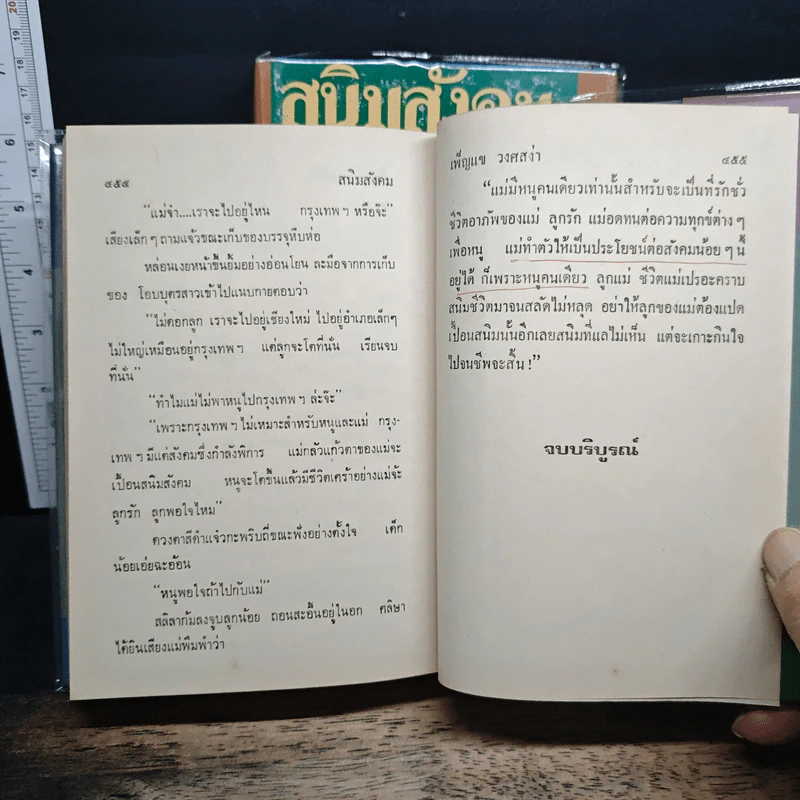 สนิมสังคม
๔๕๔ สนิมสังคม
“แม่จ๋า....เราจะไปอยู่ไหน กรุงเทพฯ หรือจ๊ะ”
เสียงเล็กๆ ถามแจ้วขณะเก็บของบรรจุหีบห่อ
หล่อนเงยหน้าขึ้นยิ้มอย่างอ่อนโยน ละมือจากการเก็บ
ของ โอบบุตรสาวเข้าไปแนบกายตอบว่า
“ไม่ดอกลูก เราจะไปอยู่เชียงใหม่ ไปอยู่อำเภอเล็กๆ
ไม่ใหญ่เหมือนอยู่กรุงเทพฯ แต่ลูกจะโตที่นั่น เรียนจบ
ที่นั่น”
“ทำไมแม่ไม่พาหนูไปกรุงเทพฯ ล่ะจ๊ะ”
“เพราะกรุงเทพฯ ไม่เหมาะสำหรับหนูและแม่ กรุง-
เทพฯ มีแต่สังคมซึ่งกำลังพิการ แม่กลัวแก้วตาของแม่จะ
เปื้อนสนิมสังคม หนูจะโตขึ้นแล้วมีชีวิตเศร้าอย่างแม่จ้ะ
ลูกรัก ลูกพอใจไหม”
ดวงตาสีดำแจ๋วกะพริบถี่ขณะฟังอย่างตั้งใจ เด็ก
น้อยเอ่ยฉะอ้อน
“หนูพอใจถ้าไปกับแม่”
สลิลาก้มลงจูบลูกน้อย ถอนสะอื้นอยู่ในอก ศลิษา
ได้ยินเสียงแม่พึมพำว่า
เพ็ญแข วงศสง่า ๔๕๕
“แม่มีหนูคนเดียวเท่านั้นสำหรับจะเป็นที่รักชั่ว
ชีวิตอาภัพของแม่ ลูกรัก แม่อดทนต่อความทุกข์ต่างๆ
เพื่อหนู แม่ทำตัวให้เป็นประโยชน์ต่อสังคมน้อยๆ นี้
อยู่ได้ ก็เพราะหนูคนเดียว ลูกแม่ ชีวิตแม่เปรอะคราบ
สนิมชีวิตมาจนสลัดไม่หลุด อย่าให้ลูกของแม่ต้องแปด
เปื้อนสนิมนั้นอีกเลยสนิมที่แลไม่เห็น แต่จะเกาะกินใจ
ไปจนชีพจะสิ้น!”
จบบริบูรณ์
7
20
19
6
5
4
3
2